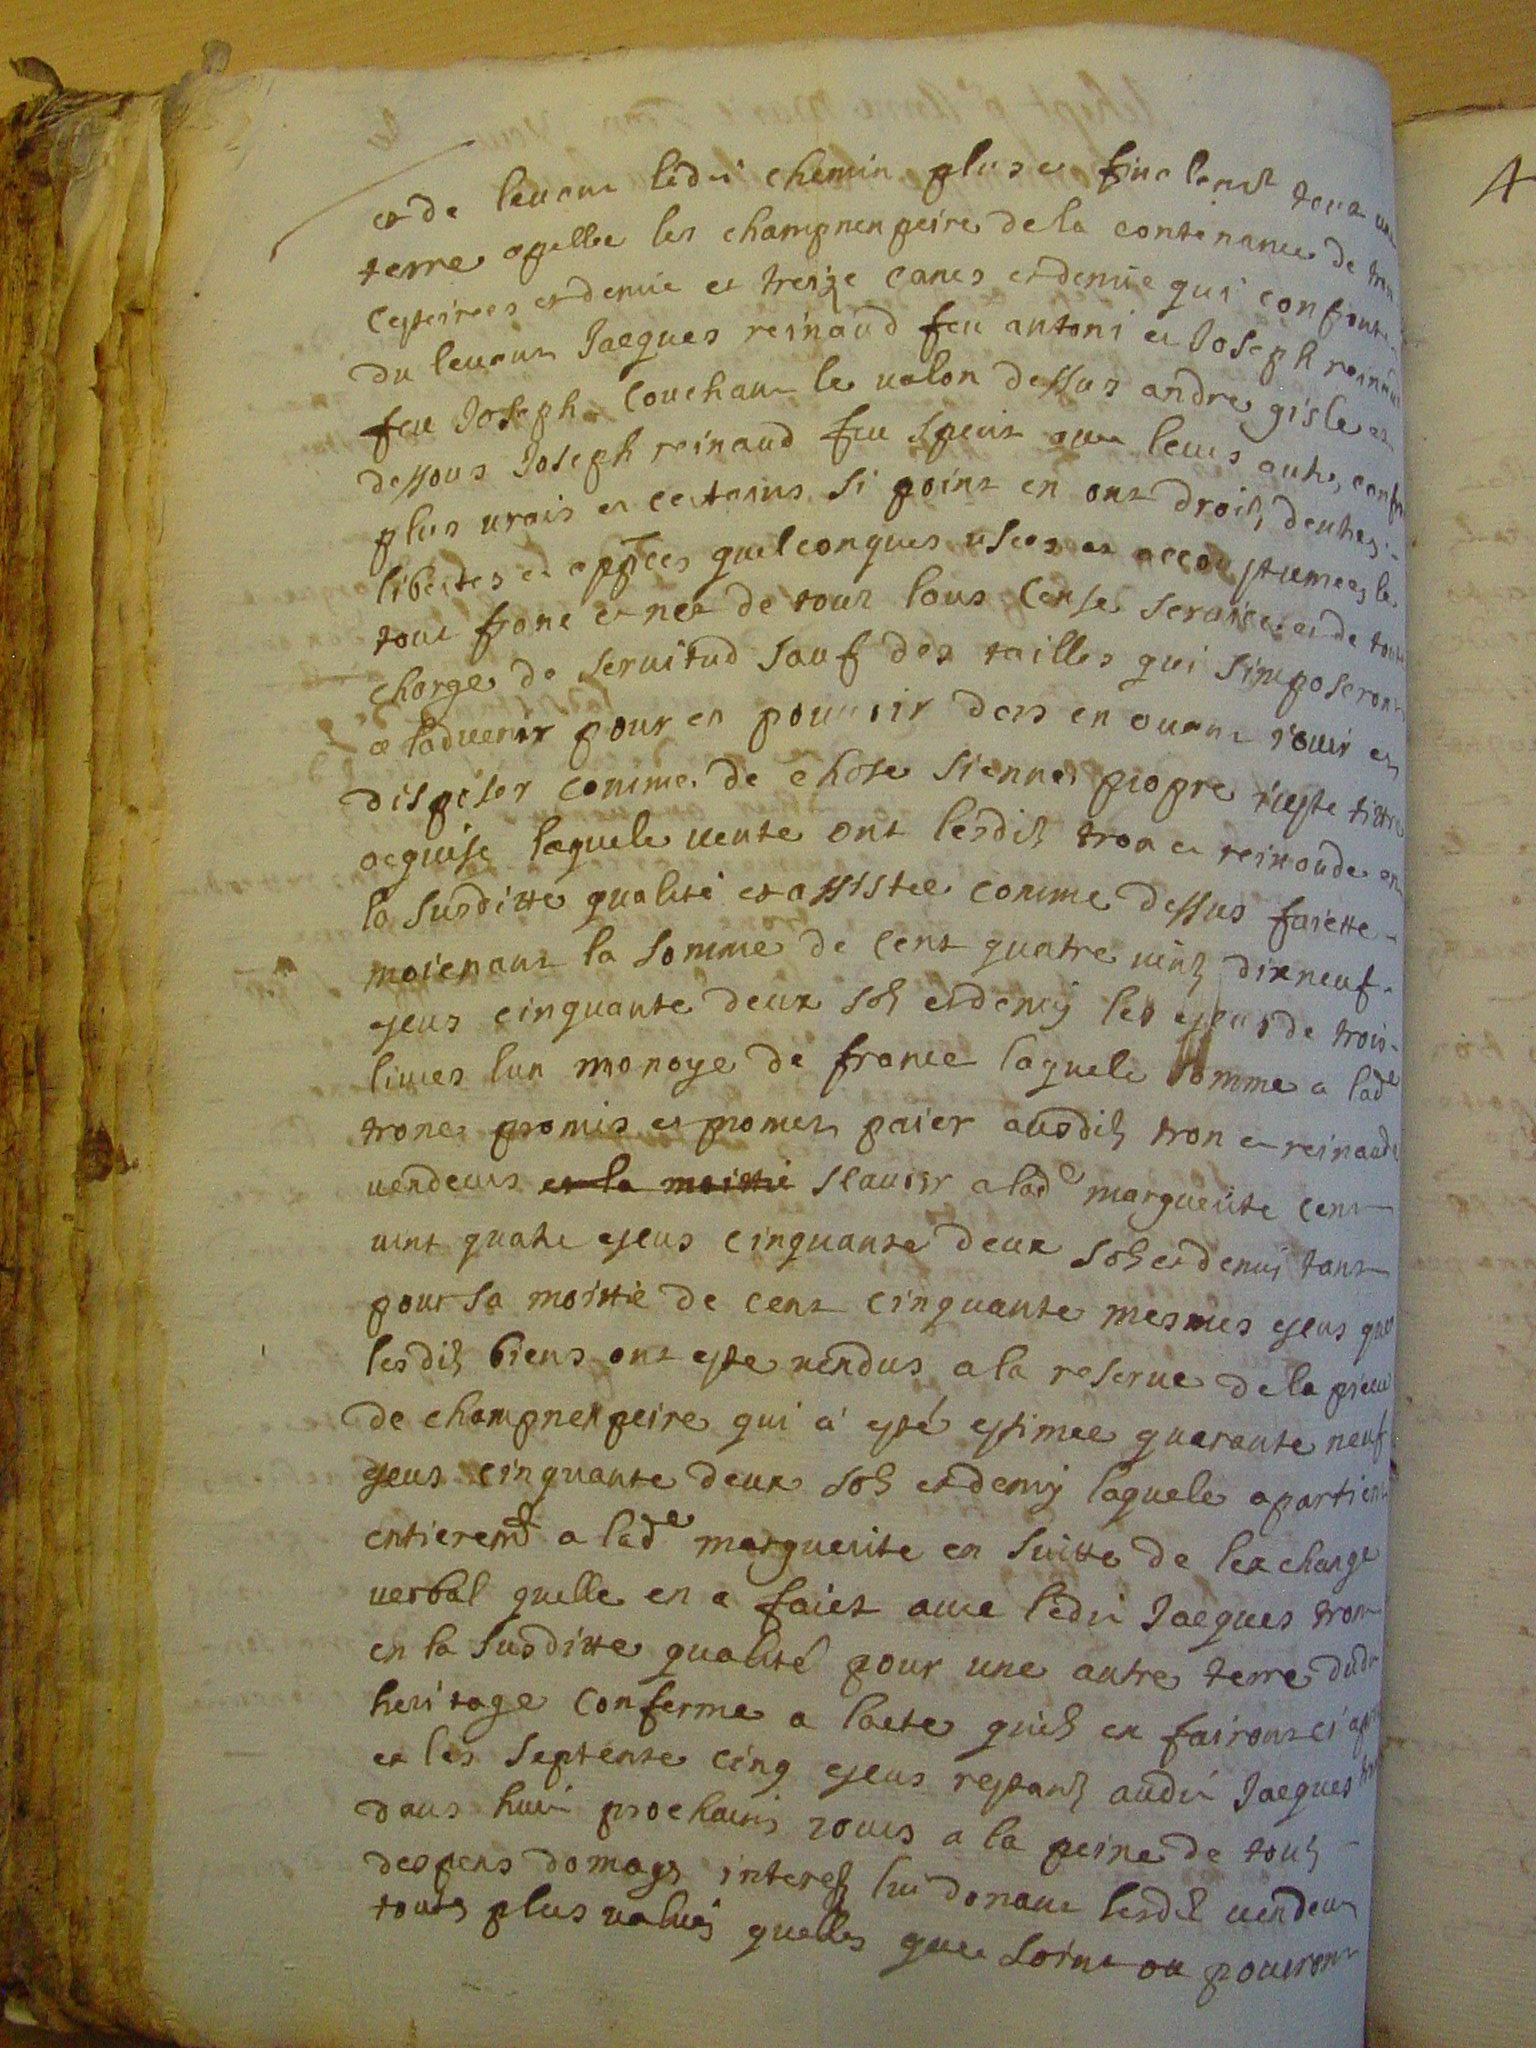 et de levant ledit chemin plus et finalemt toute une
terre apellee les champnenpeire de la contenance de trois
cesteirees et demie et treize canes et demie qui confronte
du levant Jacques reinaud feu antoni et Joseph reinaud
feu Joseph couchant le valon dessus andre gisle et
dessous Joseph reinaud feu speirit avec leurs autres confrs
plus vrais et certains si point en ont droits dentres
libertes et appces quelconques usces et accoustumees le
tout franc et net de tout lous cense service et de toute
charge de servitud sauf des tailles qui simposeront
a ladvenir pour en pouvoir dors en avant jouir et
disposer comme de chose sienne propre juste tittre
acquise laquele vente ont lesdits tron et reinaude en
la susditte qualité et assistee comme dessus faiette
moienant la somme de cent quatre vints dixneuf
escus cinquante deux sols et demy les escus de trois
livres lun monoye de france laquele somme a lade
trone promis et promet paier ausdits tron et reinaude
vendeurs et la moittie scavoir a lade marguerite cent
vint quatre escus cinquante deux sols et demi tant
pour sa moittie de cent cinquante mesmes escus que
lesdits biens ont este vendus a la reserve de la piece
de champnenpeire qui a esté estimee quarante neuf
escus cinquante deux sols et demy laquele apartient
entieremt a lade marguerite en suitte de lexchange
verbal quelle en a faiet avec ledit Jacques tron
en la susditte qualité pour une autre terre dudt
heritage conferme a lacte quils en fairont ci apres
et les septente cinq escus restants audit Jacques tron
dans huit prochains jours a la peine de tous
despens domags interests lui donant lesdits vendeurs
touts plus values quelles que soint ou pouront